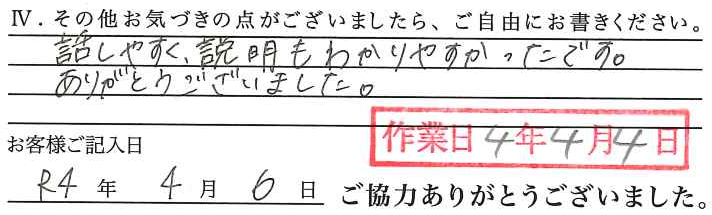 Ⅳ．その他お気づきの点がございましたら、ご自由にお書きください。
話しやすく、説明もわかりやすかったです。
ありがとうございました。
作業日 4年4月4日
お客様ご記入日
R4年 4月 6日 ご協力ありがとうございました。